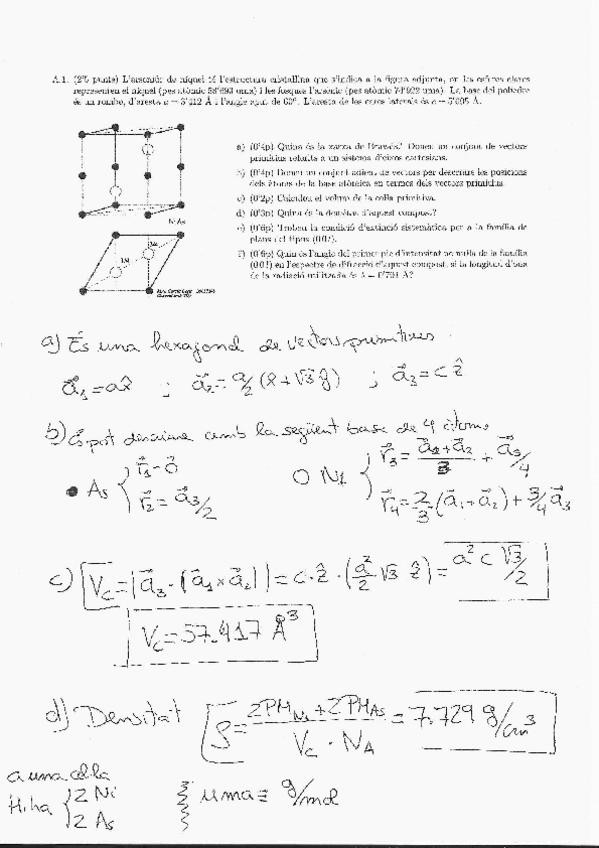 A.1. (2'5 punts) L'arsenúr de níquel té l'estructura cristal·lina que s'indica a la figura adjunta, on les esferes clares
representen el níquel (pes atòmic 58'693 uma) i les fosques l'arsènic (pes atòmic 74'922 uma). La base del políedre
és un rombe, d'aresta a = 3'612 Å i l'angle agut de 60º. L'aresta de les cares laterals és c = 5'035 Å.
a) (0'4p) Quina és la xarxa de Bravais? Doneu un conjunt de vectors
primitius referits a un sistema d'eixos cartesians.
b) (0'4p) Doneu un conjunt de vectors per descriure les posicions
dels àtoms de la base atòmica en termes dels vectors primitius.
c) (0'2p) Calculeu el volum de la cel·la primitiva.
d) (0'3p) Quina és la densitat d'aquest compost?
e) (0'6p) Trobeu la condició d'extinció sistemàtica per a la família de
plans del tipus (00l).
f) (0'6p) Quin és l'angle del primer pic d'intensitat no nul·la de la família
(00l) en l'espectre de difracció d'aquest compost, si la longitud d'ona
de la radiació utilitzada és
Ni As
a) És una hexagonal de vectors primitius
a⃗₁=ax̂ ; a⃗₂=a/2 (x̂+√3 ŷ) ; a⃗₃=c ẑ
b) Es pot descriure amb la següent base de 4 àtoms
● As { r⃗₁=0⃗
r⃗₂=a⃗₃/2
O Ni { r⃗₃=(a⃗₁+a⃗₂)/3 + a⃗₃/4
r⃗₄=2/3 (a⃗₁+a⃗₂)+3/4 a⃗₃
c) V_c=|a⃗₃·(a⃗₁×a⃗₂)|=c·ẑ·(a²/2 √3 ẑ)=a² c √3/2
V_c=57.417 Å³
d) Densitat ρ=(2PM_Ni+2PM_As)/(V_c·N_A)=7.729 g/cm³
a una cel·la
Hi ha { 2 Ni
2 As
uma≡ g/mol